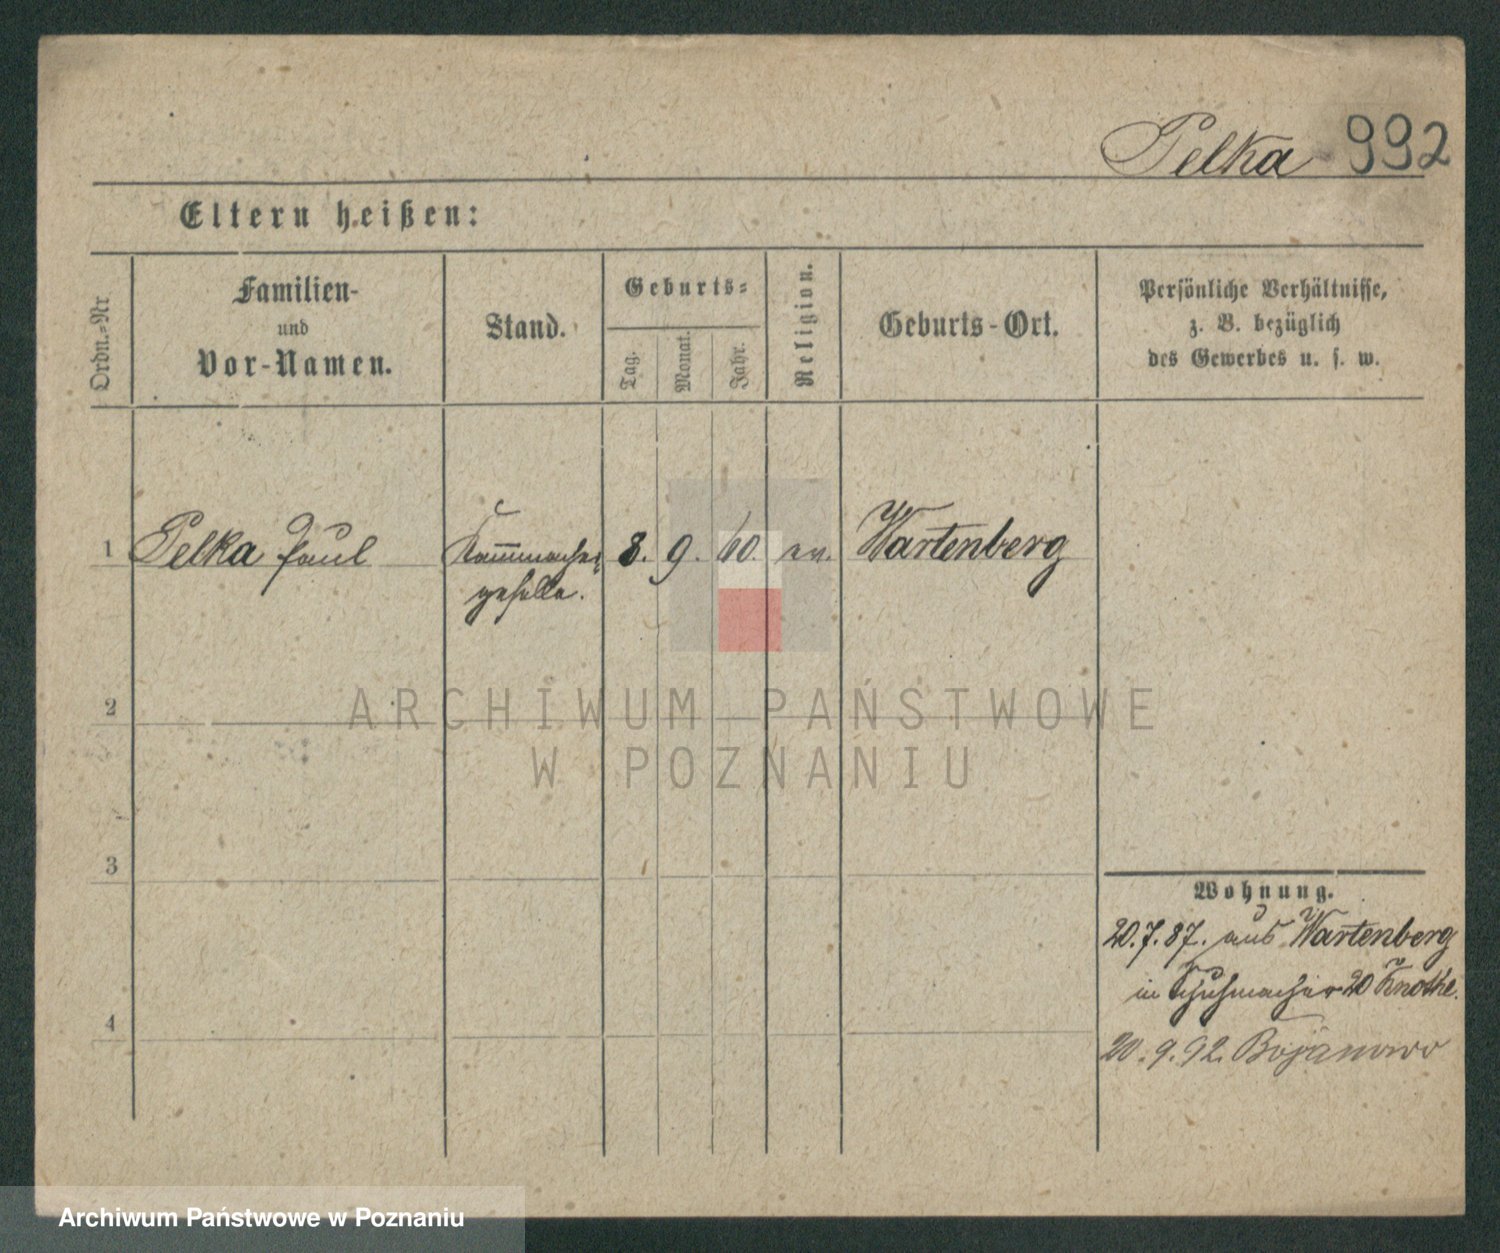 Pelka 992
Eltern heißen:
Ordn.=Nr
Familien-
und
Vor-Namen.
Stand.
Geburts=
Tag.
Monat.
Jahr.
Religion.
Geburts-Ort.
Persönliche Verhältnisse,
z. B. bezüglich
des Gewerbes u. s. w.
1 Pelka Paul Kammmacher= 8. 9. 60. ev. Wartenberg
geselle.
2
3
4
Wohnung.
20.7.87. aus Wartenberg
in Schuhmacher 20 Knothe.
20.9.92. Bojanowo
ARCHIWUM PAŃSTWOWE
W POZNANIU
Archiwum Państwowe w Poznaniu